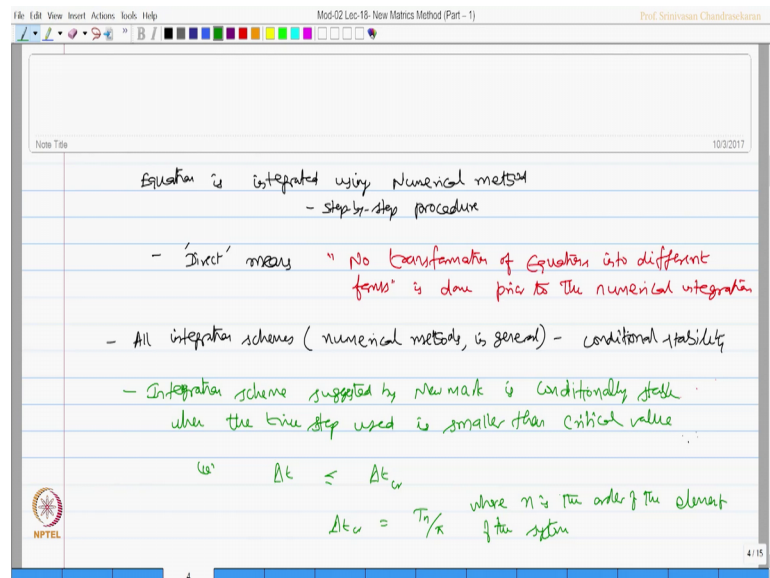 File Edit View Insert Actions Tools Help
Mod-02 Lec-18- New Matrics Method (Part – 1)
Prof. Srinivasan Chandrasekaran
B I
Note Title
10/3/2017
Equation is integrated using Numerical method
- Step-by-step procedure
- 'Direct' means "No transformation of Equations into different
forms" is done prior to the numerical integration
- All integration schemes (numerical methods, in general) - conditional stability
- Integration scheme suggested by Newmark is conditionally stable
when the time step used is smaller than critical value
(ie) Δt ≤ Δt_cr
Δt_cr = Tn/π where n is the order of the element
of the system
NPTEL
4 / 15